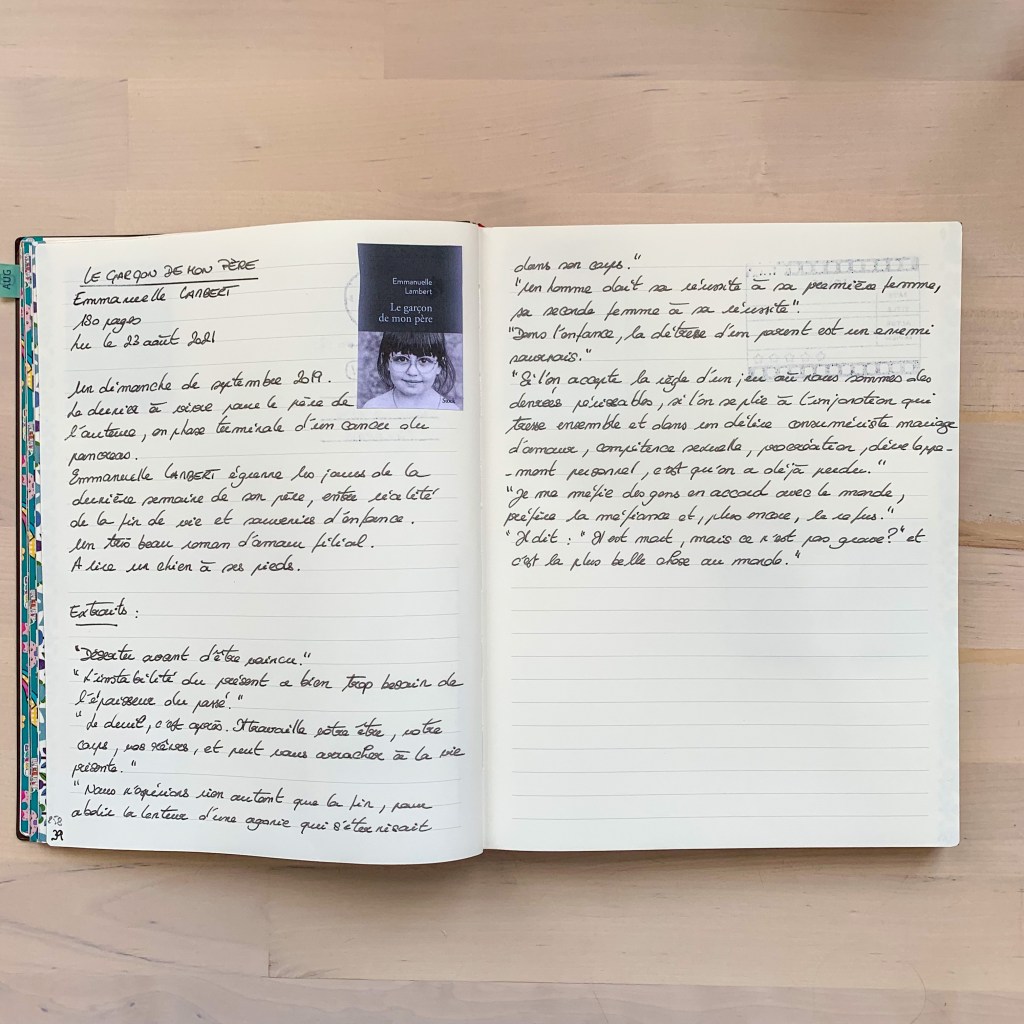 AUG
LE GARÇON DE MON PÈRE
Emmanuelle LAMBERT
180 pages
Lu le 23 août 2021
Emmanuelle
Lambert
Le garçon
de mon père
Stock
Un dimanche de septembre 2019.
Le dernier à vivre pour le père de
l'auteure, en phase terminale d'un cancer du
pancréas.
Emmanuelle LAMBERT égrenne les jours de la
dernière semaine de son père, entre réalité
de la fin de vie et souvenirs d'enfance.
Un très beau roman d'amour filial.
A lire un chien à ses pieds.
Extraits :
"Déserter avant d'être vaincu."
"L'instabilité du présent a bien trop besoin de
l'épaisseur du passé."
"Le deuil, c'est après. Il travaille votre être, votre
corps, vos rêves, et peut vous arracher à la vie
présente."
"Nous n'espérions rien autant que la fin, pour
abolir la lenteur d'une agonie qui s'éternisait
39
dans son corps."
"Un homme doit sa réussite à sa première femme,
sa seconde femme à sa réussite".
"Dans l'enfance, la détresse d'un parent est un ennemi
sournois."
"Si l'on accepte la règle d'un jeu où nous sommes des
denrées périssables, si l'on se plie à l'injonction qui
tresse ensemble et dans un délire consumériste mariage
d'amour, compétence sexuelle, procréation, développe-
-ment personnel, c'est qu'on a déjà perdu."
"Je me méfie des gens en accord avec le monde,
préfère la méfiance et, plus encore, le refus."
"Il dit : "Il est mort, mais ce n'est pas grave?" et
c'est la plus belle chose au monde."